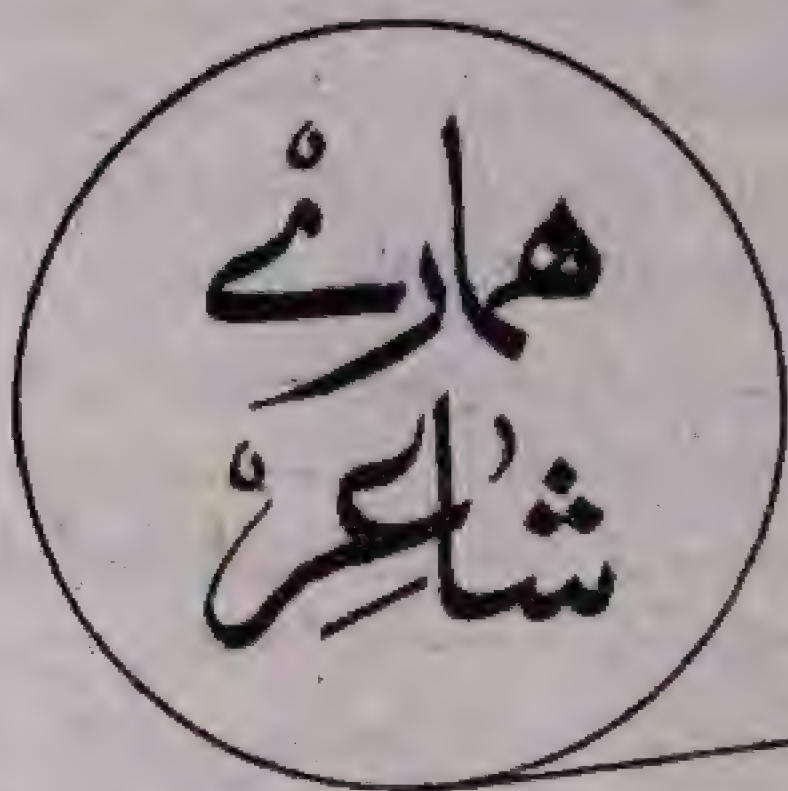 ہمارے
شاعر